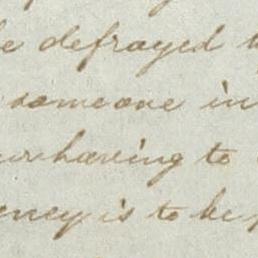 e defrayed
someone in
having to
ency is to be